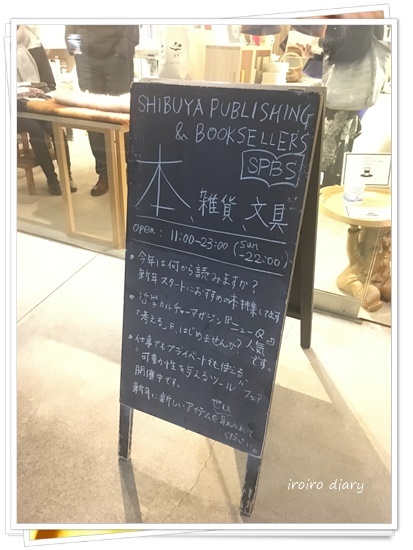 SHIBUYA PUBLISHING
& BOOKSELLERS
SPBS
本、雑貨、文具
open: 11:00-23:00 (sun -22:00)
・今年は何から読みますか?
新年スタートにおすすめの本特集してます
・哲学カルチャーマガジン『ニューQ』人気です。
「考える」を、はじめませんか?
・仕事でもプライベートでも使える
"可動の性を与えるツール"フェア
開催中です。
新年に新しいアイテムを
ぜひ
iroiro diary